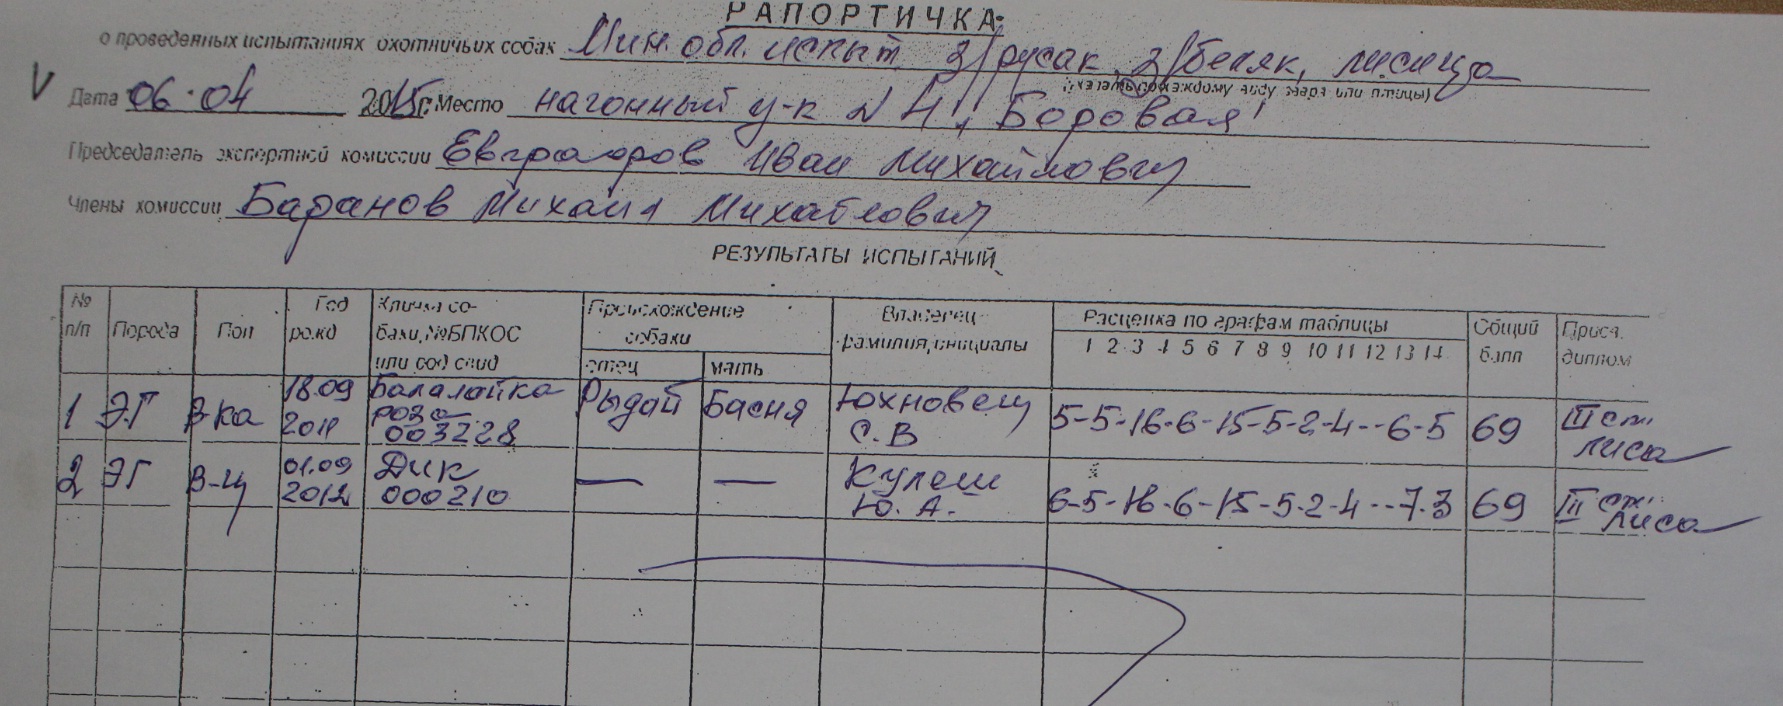 РАПОРТИЧКА
о проведенных испытаниях охотничьих собак Мин. обл. испыт з/русак, з/беляк, лисица
(указать по каждому виду зверя или птицы)
V Дата 06.04 2015г. Место нагонный у-к №4 "Боровая"
Председатель экспертной комиссии Евграфоров Иван Михайлович
Члены комиссии Баранов Михаил Михайлович
РЕЗУЛЬТАТЫ ИСПЫТАНИЙ
№ п/п Порода Пол Год рожд Кличка собаки, №БПКОС или сод свид Происхождение собаки отец мать Владелец фамилия, инициалы Расценка по графам таблицы 1 2 3 4 5 6 7 8 9 10 11 12 13 14 Общий балл Присл. диплом
1 ЭГ В-ка 18.09 2011 Балалайка Роза 003228 Рыдай Басня Юхновец С.В 5-5-16-6-15-5-2-4--6-5 69 III ст. лиса
2 ЭГ В-ц 01.09 2012 Дик 000210 — — Кулеш Ю.А. 6-5-16-6-15-5-2-4--7-3 69 III ст. лиса